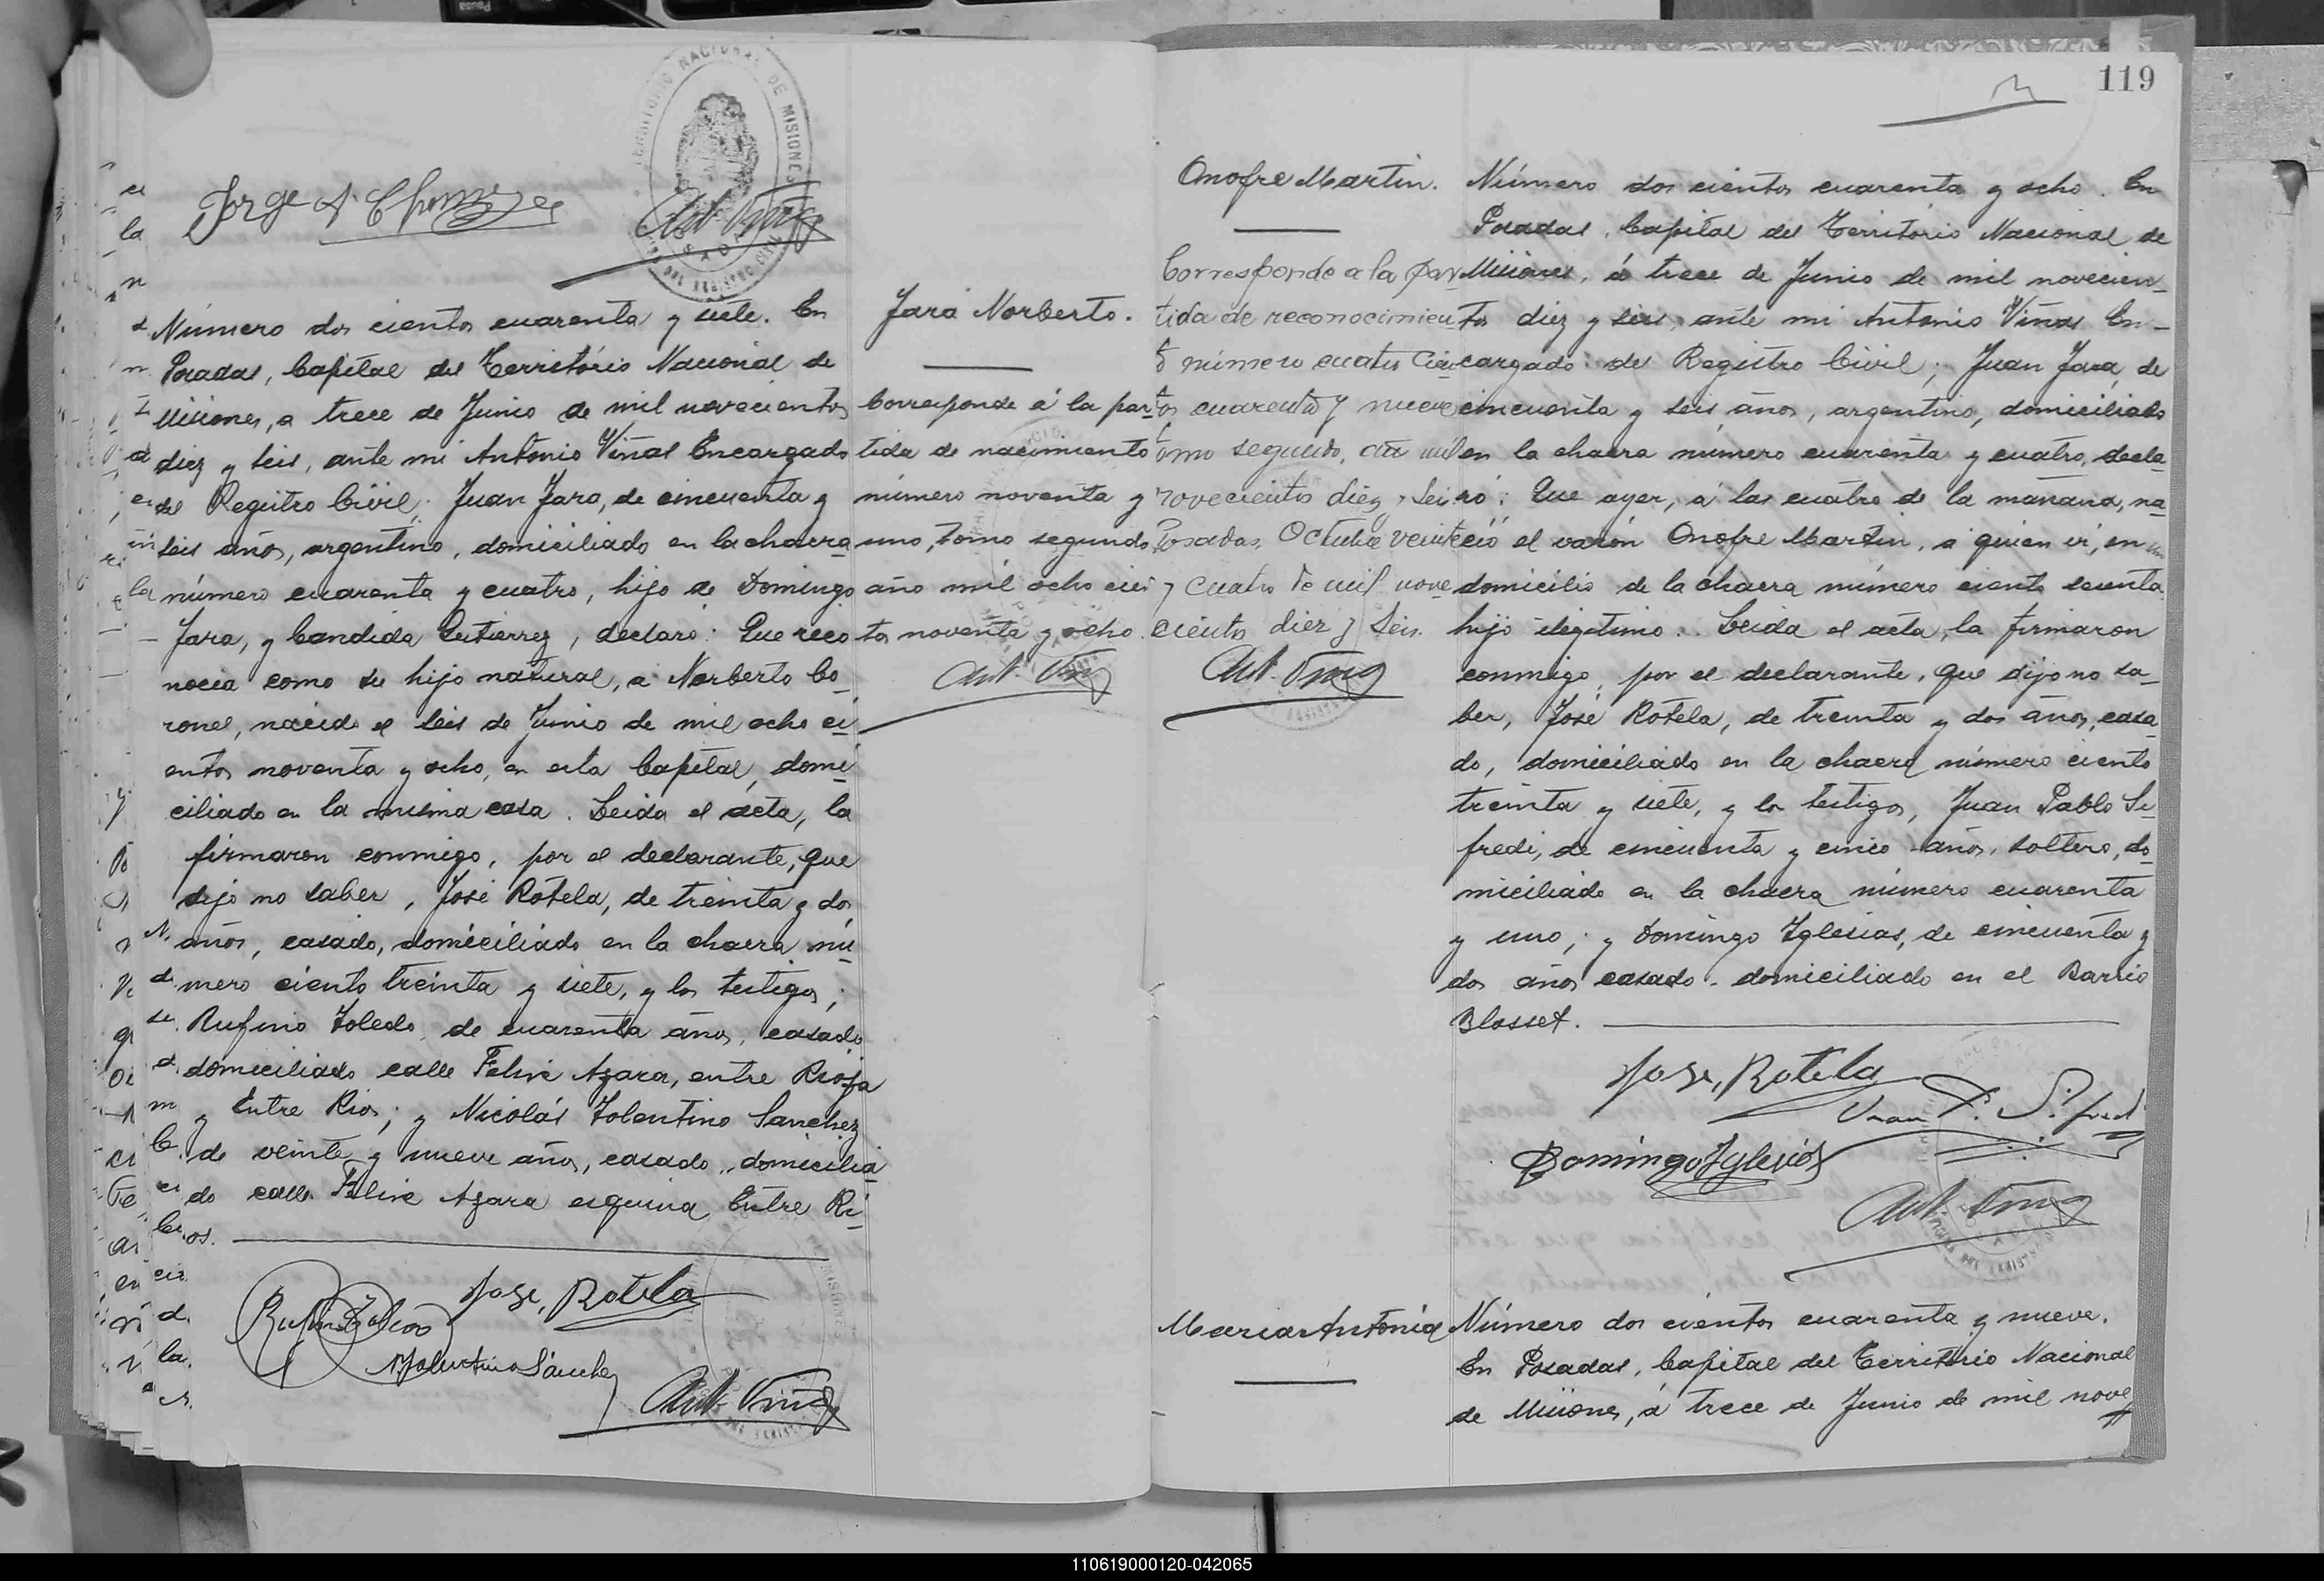 Jorge A.
TERRITORIO NACIONAL DE MISIONES
Ant. Viñas
Número dos cientos cuarenta y siete. En
Posadas, Capital del Território Nacional de
Misiones, a trece de Junio de mil novecientos
diez y seis, ante mi Antonio Viñas Encargado
del Registro Civil; Juan Jara, de cincuenta y
seis años, argentino, domiciliado en la chacra
número cuarenta y cuatro, hijo de Domingo
Jara, y Candida Gutierrez, declaró: Que reco
nocia como su hijo natural, a Norberto Co-
ronel, nacido el seis de Junio de mil ocho ci-
entos noventa y ocho, en esta Capital, domi-
ciliado en la misma casa. Leida el acta, la
firmaron conmigo, por el declarante, que
dijo no saber, José Rotela, de treinta y dos
años, casado, domiciliado en la chacra nú-
mero ciento treinta y siete, y los testigos;
Rufino Toledo, de cuarenta años, casado
domiciliado calle Felix Azara, entre Rioja
y Entre Rios; y Nicolás Tolentino Sanchez
de veinte y nueve años, casado, domicilia-
do calle Felix Azara esquina Entre Ri-
os.
Jose, Rotela
Rufino Toledo
NTolentino Sánchez
Ant. Viñas
Jara Norberto.
Corresponde á la par-
tida de nacimiento
número noventa y
uno, tomo segundo,
año mil ocho cien
tos noventa y ocho.
Ant. Viñas
119
Onofre Martin.
Corresponde a la par
tida de reconocimien
to número cuatro cien
tos cuarenta y nueve
tomo segundo, año mil
novecientos diez y seis
Posadas, Octubre veinte
y cuatro de mil nove
cientos diez y seis.
Ant. Viñas
Número dos cientos cuarenta y ocho. En
Posadas, Capital del Território Nacional de
Misiones, á trece de Junio de mil novecien-
tos diez y seis, ante mi Antonio Viñas En-
cargado del Registro Civil; Juan Jara, de
cincuenta y seis años, argentino, domiciliado
en la chacra número cuarenta y cuatro, decla-
ró: Que ayer, a las cuatro de la mañana, na-
ció el varón Onofre Martin, a quien vi, en su
domicilio de la chacra número ciento
hijo ilegitimo. Leida el acta, la firmaron
conmigo, por el declarante, que dijo no sa-
ber, José Rotela, de treinta y dos años, casa-
do, domiciliado en la chacra número ciento
treinta y siete, y los testigos, Juan Pablo Si-
fredi, de cincuenta y cinco años, soltero, do-
miciliado en la chacra número cuarenta
y uno; y Domingo Iglesias, de cincuenta y
dos años casado, domiciliado en el Barrio
Blosset.
Jose, Rotela
Juan P. Sifredi
Domingo Iglesias
Ant. Viñas
Maria Antonia
Número dos cientos cuarenta y nueve.
En Posadas, Capital del Território Nacional
de Misiones, á trece de Junio de mil nove
110619000120-042065